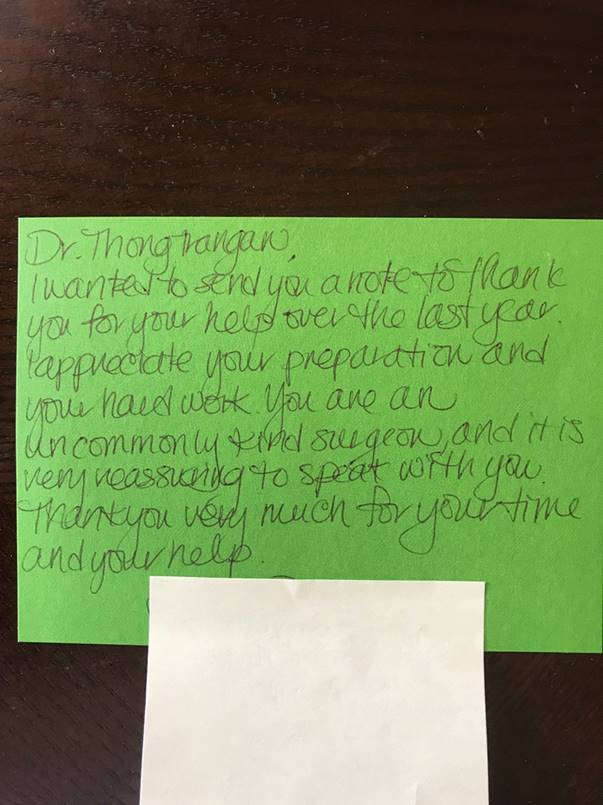 Dr. Thongtrangan,
I wanted to send you a note to thank
you for your help over the last year.
I appreciate your preparation and
your hard work. You are an
uncommonly kind surgeon, and it is
very reassuring to speak with you.
Thank you very much for your time
and your help.